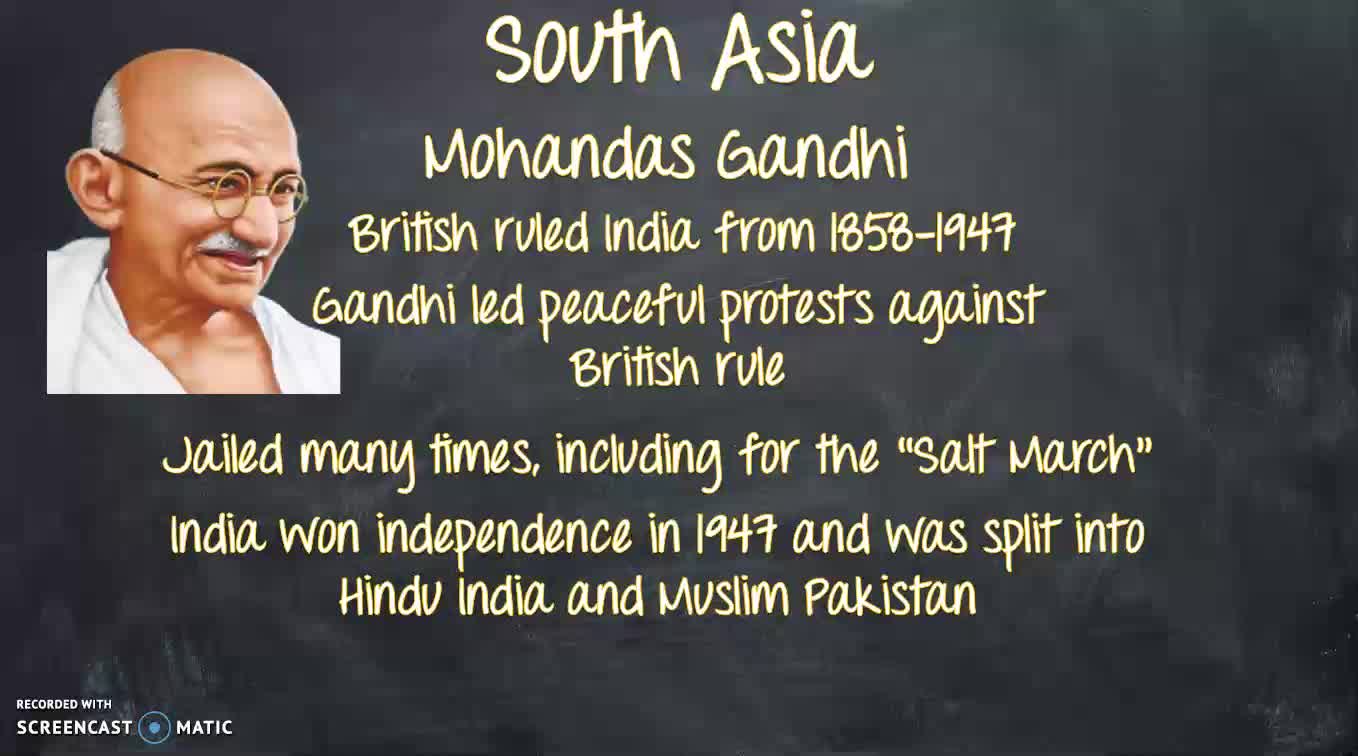 South Asia
Mohandas Gandhi
British ruled India from 1858-1947
Gandhi led peaceful protests against
British rule
Jailed many times, including for the “Salt March”
India won independence in 1947 and was split into
Hindu India and Muslim Pakistan
RECORDED WITH
SCREENCAST MATIC